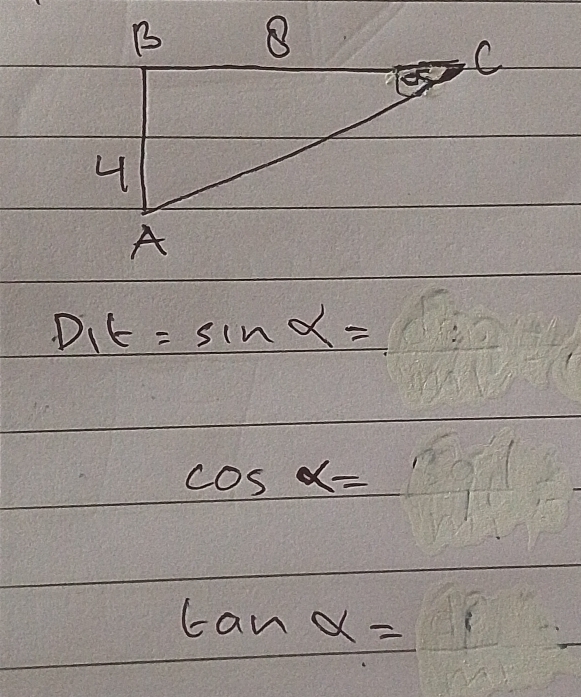 B 8 C
α
4
A
Dit = sin α =
cos α =
tan α =